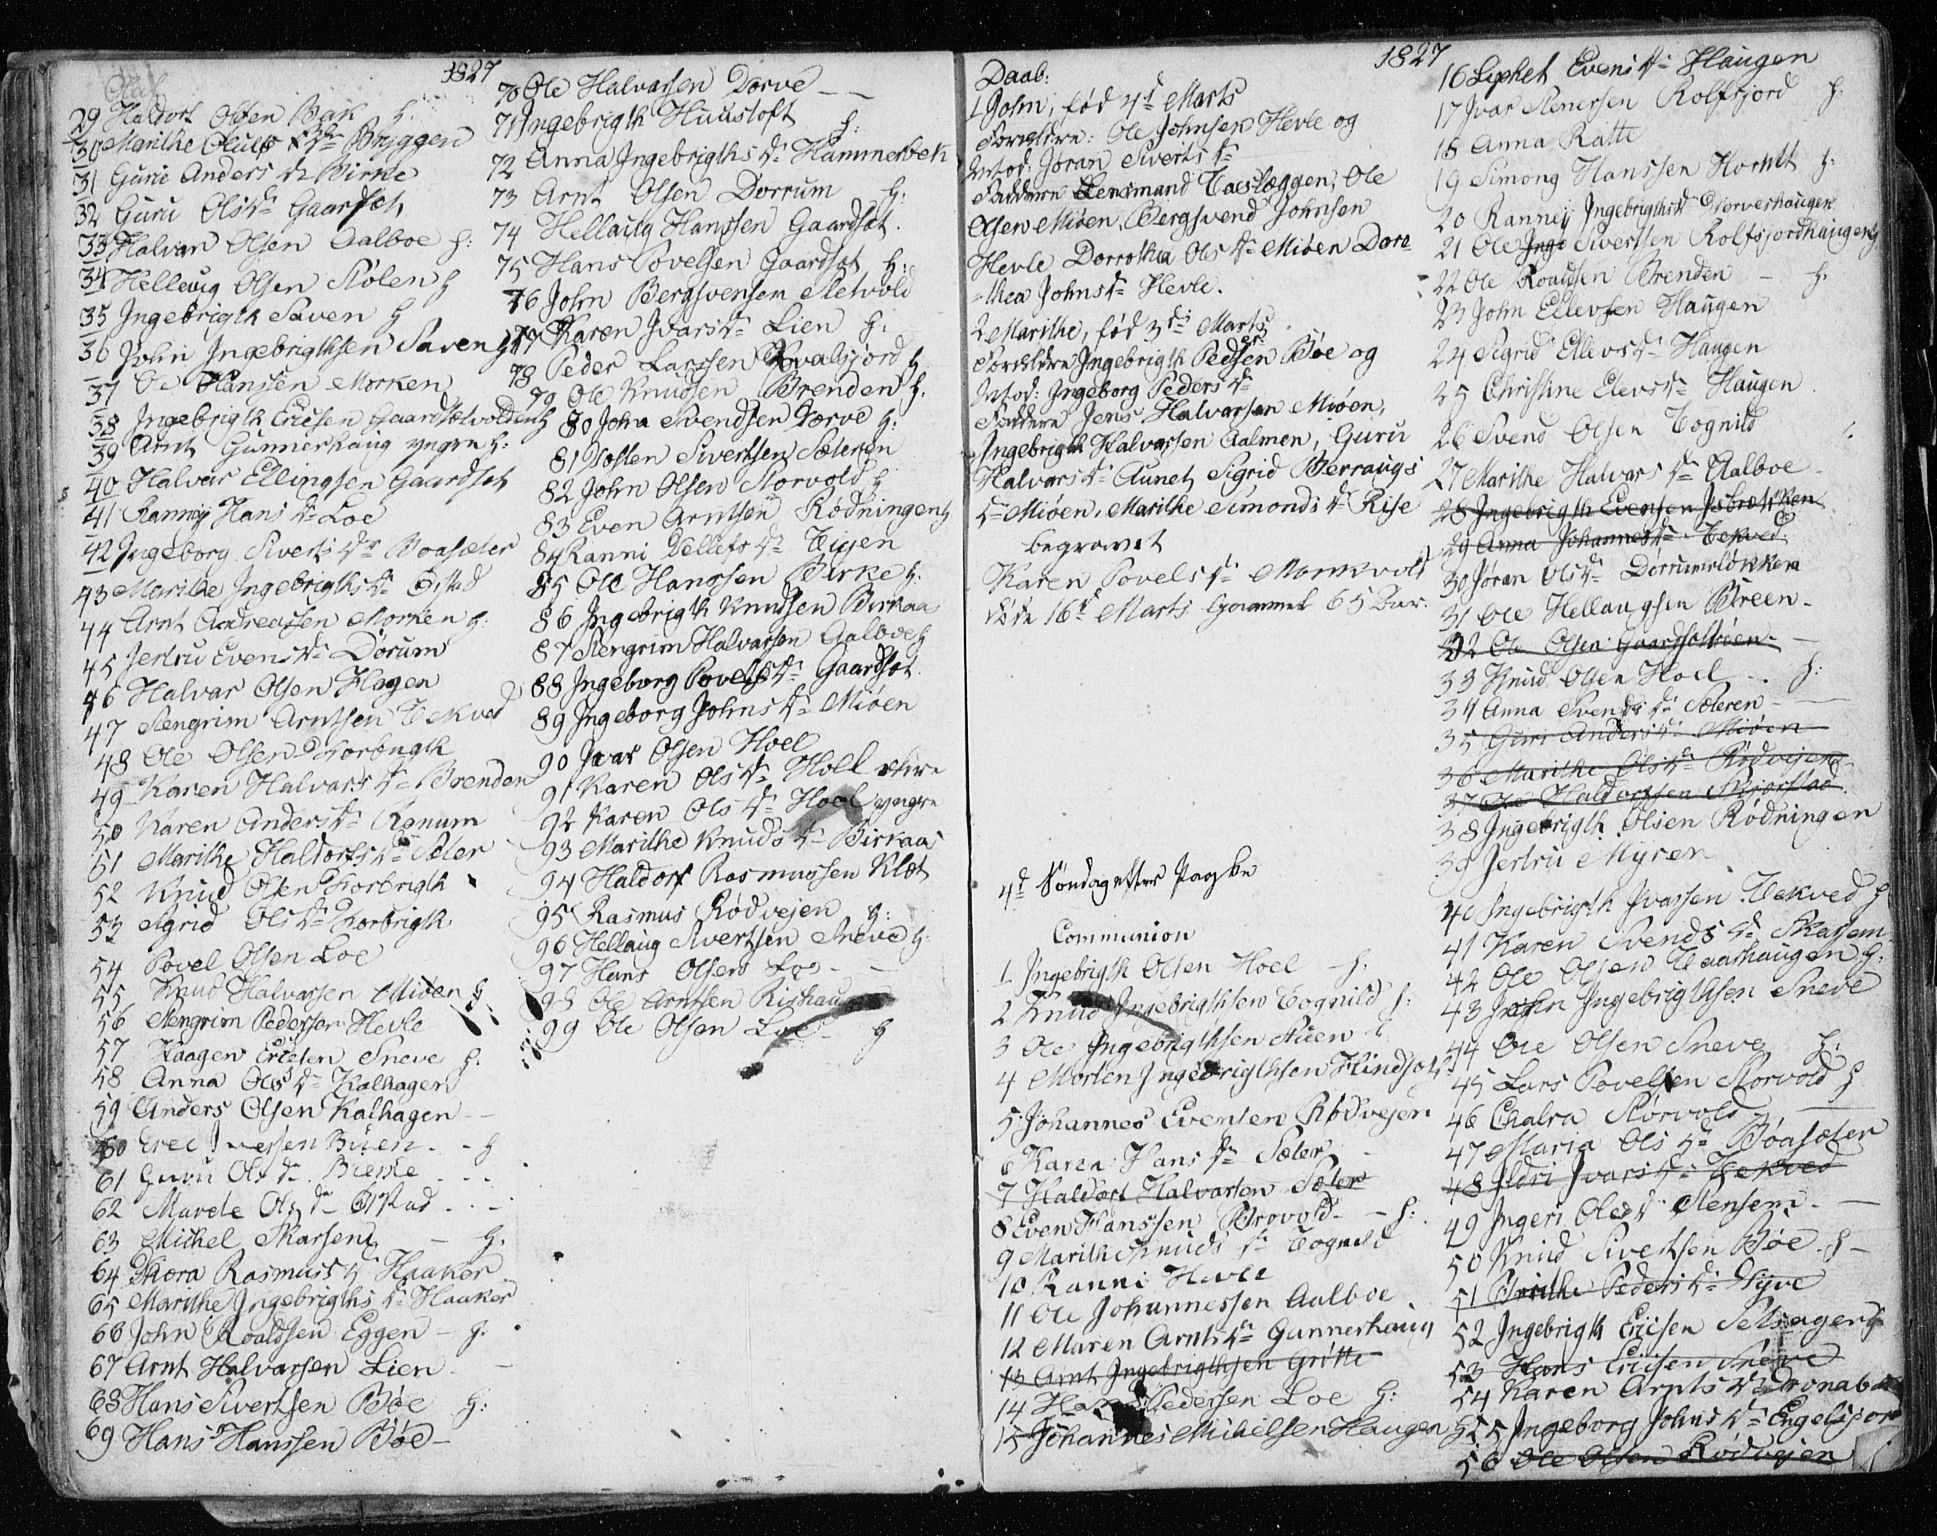 1827
29 Haldort Olsen Bak h:
30 Marithe Oluls Dr Bryggen
31 Guru Anders Dr Birke
32 Guru Ols Dr Gaardsøt
33 Halvar Olsen Aalboe h:
34 Hellevig Olsen Stølen h
35 Ingebrigth Saven h
36 John Ingebrigthsen Saven h
37 Ole Hanssen Morken
38 Ingebrigth Ericsen Gaardsætvolden h
39 Arnt Gunnerhaug yngre h:
40 Halvar Ellingsen Gaardsøt
41 Ranney Hans Dr Loe
42 Ingeborg Siverts Dr Boasæter
43 Marithe Ingebrigths Dr Ørstad
44 Arnt Andreassen Morken h:
45 Jertru Evens Dr Dørum
46 Halvar Olsen Hagen
47 Stengrim Arntsen Tekved
48 Ole Olsen Torbrigth
49 Karen Halvars Dr Brenden
50 Karen Anders Dr Ranum
51 Marithe Haldorts Dr Sæter
52 Knud Olsen Torbrigth
53 Sigrid Ols Dr Torbrigth
54 Povel Olsen Loe
55 Knud Halvarsen Miøen h
56 Stengrim Pedersen Hevle
57 Haagen Ericsen Sneve h:
58 Anna Ols Dr Kalhagen
59 Anders Olsen Kalhagen --
60 Eric Iversen Buen - - h
61 Guru Ols Dr Bierke - - -
62 Marete Ols Dr Ørstad - - -
63 Michel Skarsem - h:
64 Thora Rasmuss Dr Haaker
65 Marithe Ingebrigths Dr Haaker
66 John Roaldsen Eggen - h.
67 Arnt Halvarsen Lien -
68 Hans Sivertsen Bøe h:
69 Hans Hanssen Bøe -
70 Ole Halvarsen Dorve --
71 Ingebrigth Huustoft h:
72 Anna Ingebrigths Dr Hammerbek
73 Arnt Olsen Dorrum h:
74 Hellaug Hanssen Gaardsøt.
75 Hans Povelsen Gaardsøt h:
76 John Bergsvensen Sletvold
77 Karen Ivars Dr Lien h:
78 Peder Larssen Kvalsjord h
79 Ole Knudsen Brenden h.
80 John Svendsen Dorve h:
81 Tosten Sivertsen Sæteren
82 John Olsen Storvold h
83 Even Arntsen Rødningen h
84 Ranni Dellefs Dr Eyen
85 Ole Hanssen Birke h:
86 Ingebrigth Knudsen Birkaa
87 Stengrim Halvarsen Aalboe h
88 Ingeborg Povels Dr Gaardsøt
89 Ingeborg Johns Dr Miøen
90 Ivar Olsen Hoel
91 Karen Ols Dr Hoel eldre
92 Karen Ols Dr Hoel yngre
93 Marithe Knuds Dr Birkaa
94 Haldorf Rasmussen Kløt
95 Rasmus Rødvejen h:
96 Hellaug Sivertsen Sneve h.
97 Hans Olsen Loe - -
98 Ole Arntsen Rishaug
99 Ole Olsen Loe - h
1827
Daab:
1 John, fød 4d Marts
Foreldre: Ole Johnsen Hevle og
Jøran Siverts Dr
Faddere Lensmand Taeslæggen, Ole
Olsen Miøen, Bergsvend Johnsen
Hevle Dorrothea Ols Dr Miøen Dore
-thea Johns Dr Hevle.
2 Marithe, fød 3di Marts
Foreldre Ingebrigth Pedersen Bøe og
Ingeborg Peders Dr
Faddere Jens Halvarsen Miøen,
Ingebrigth Halvarsen Aalmen, Guru
Halvars Dr Aunet, Sigrid Berraugs
Dr Miøen, Marithe Simonds Dr Rise
begravet
Karen Povels Dr Morkvold
døde 16d Marts Gammel 65 Aar.
4d Søndag efter Paaske
Communion
1 Ingebrigth Olsen Hoel - h:
2 Knud Ingebrigthsen Tognild h:
3 Ole Ingebrigthsen Auen
4 Morten Ingebrigthsen Hindsøt
5 Johannes Evensen Rødvejen
6 Karen Hans Dr Sæter
7 Haldort Halvarsen Sæter
8 Even Hanssen Brovold - h:
9 Marith Knuds Dr Tognild
10 Ranni Hevle
11 Ole Johannessen Aalboe
12 Maren Arnts Dr Gunnerhaug
13 Arnt Ingebrigthsen Grøtte
14 Hans Pedersen Loe h:
15 Johannes Michelsen Haugen h
16 Liphet Evens Dr Haugen
17 Ivar Stenersen Rolfsjord h:
18 Anna Ratte
19 Simong Hanssen Hornet h:
20 Ranney Ingebrigths Dr Dorveshaugen
21 Ole Sivertsen Rolfsjordhaugen h
22 Ole Roaldsen Brenden - h:
23 John Ellevsen Haugen
24 Sigrid Ellevs Dr Haugen
25 Christine Elevs Dr Haugen
26 Svend Olsen Tognild
27 Marithe Halvars Dr Aalboe
28 Ingebrigth Evensen Isbrekken
29 Anna Johannes Dr Tekved
30 Jøran Ols Dr Dorrumsløkken
31 Ole Hellaugsen Breen -
32 Ole Olsen Gaardsøtmoen -
33 Knud Olsen Hoel - h:
34 Anna Svends Dr Sæteren -
35 Guri Anders Dr Miøen
36 Marithe Ols Dr Rødvejen
37 Ole Haldorsen Skjørstad
38 Ingebrigth Olsen Rødningen
39 Jertru Myren
40 Ingebrigth Ivarsen Tekved h
41 Karen Svends Dr Skarsem
42 Ole Olsen Taarhaugen h:
43 John Ingebrigthsen Sneve
44 Ole Olsen Sneve h:
45 Lars Povelsen Storvold h
46 Chalra Storvold
47 Maria Ols Dr Boasæter
48 Ildri Ivars Dr Tekved
49 Ingeri Oles Dr Stensem -
50 Knud Sivertsen Bøe h -
51 Berithe Peders Dr Nyve
52 Ingebrigth Ericsen Setsager h
53 Hans Ericsen Sneve
54 Karen Arnts Dr Dronabak
55 Ingeborg Johns Dr Engelsjor
56 Ole Olsen Rødvejen